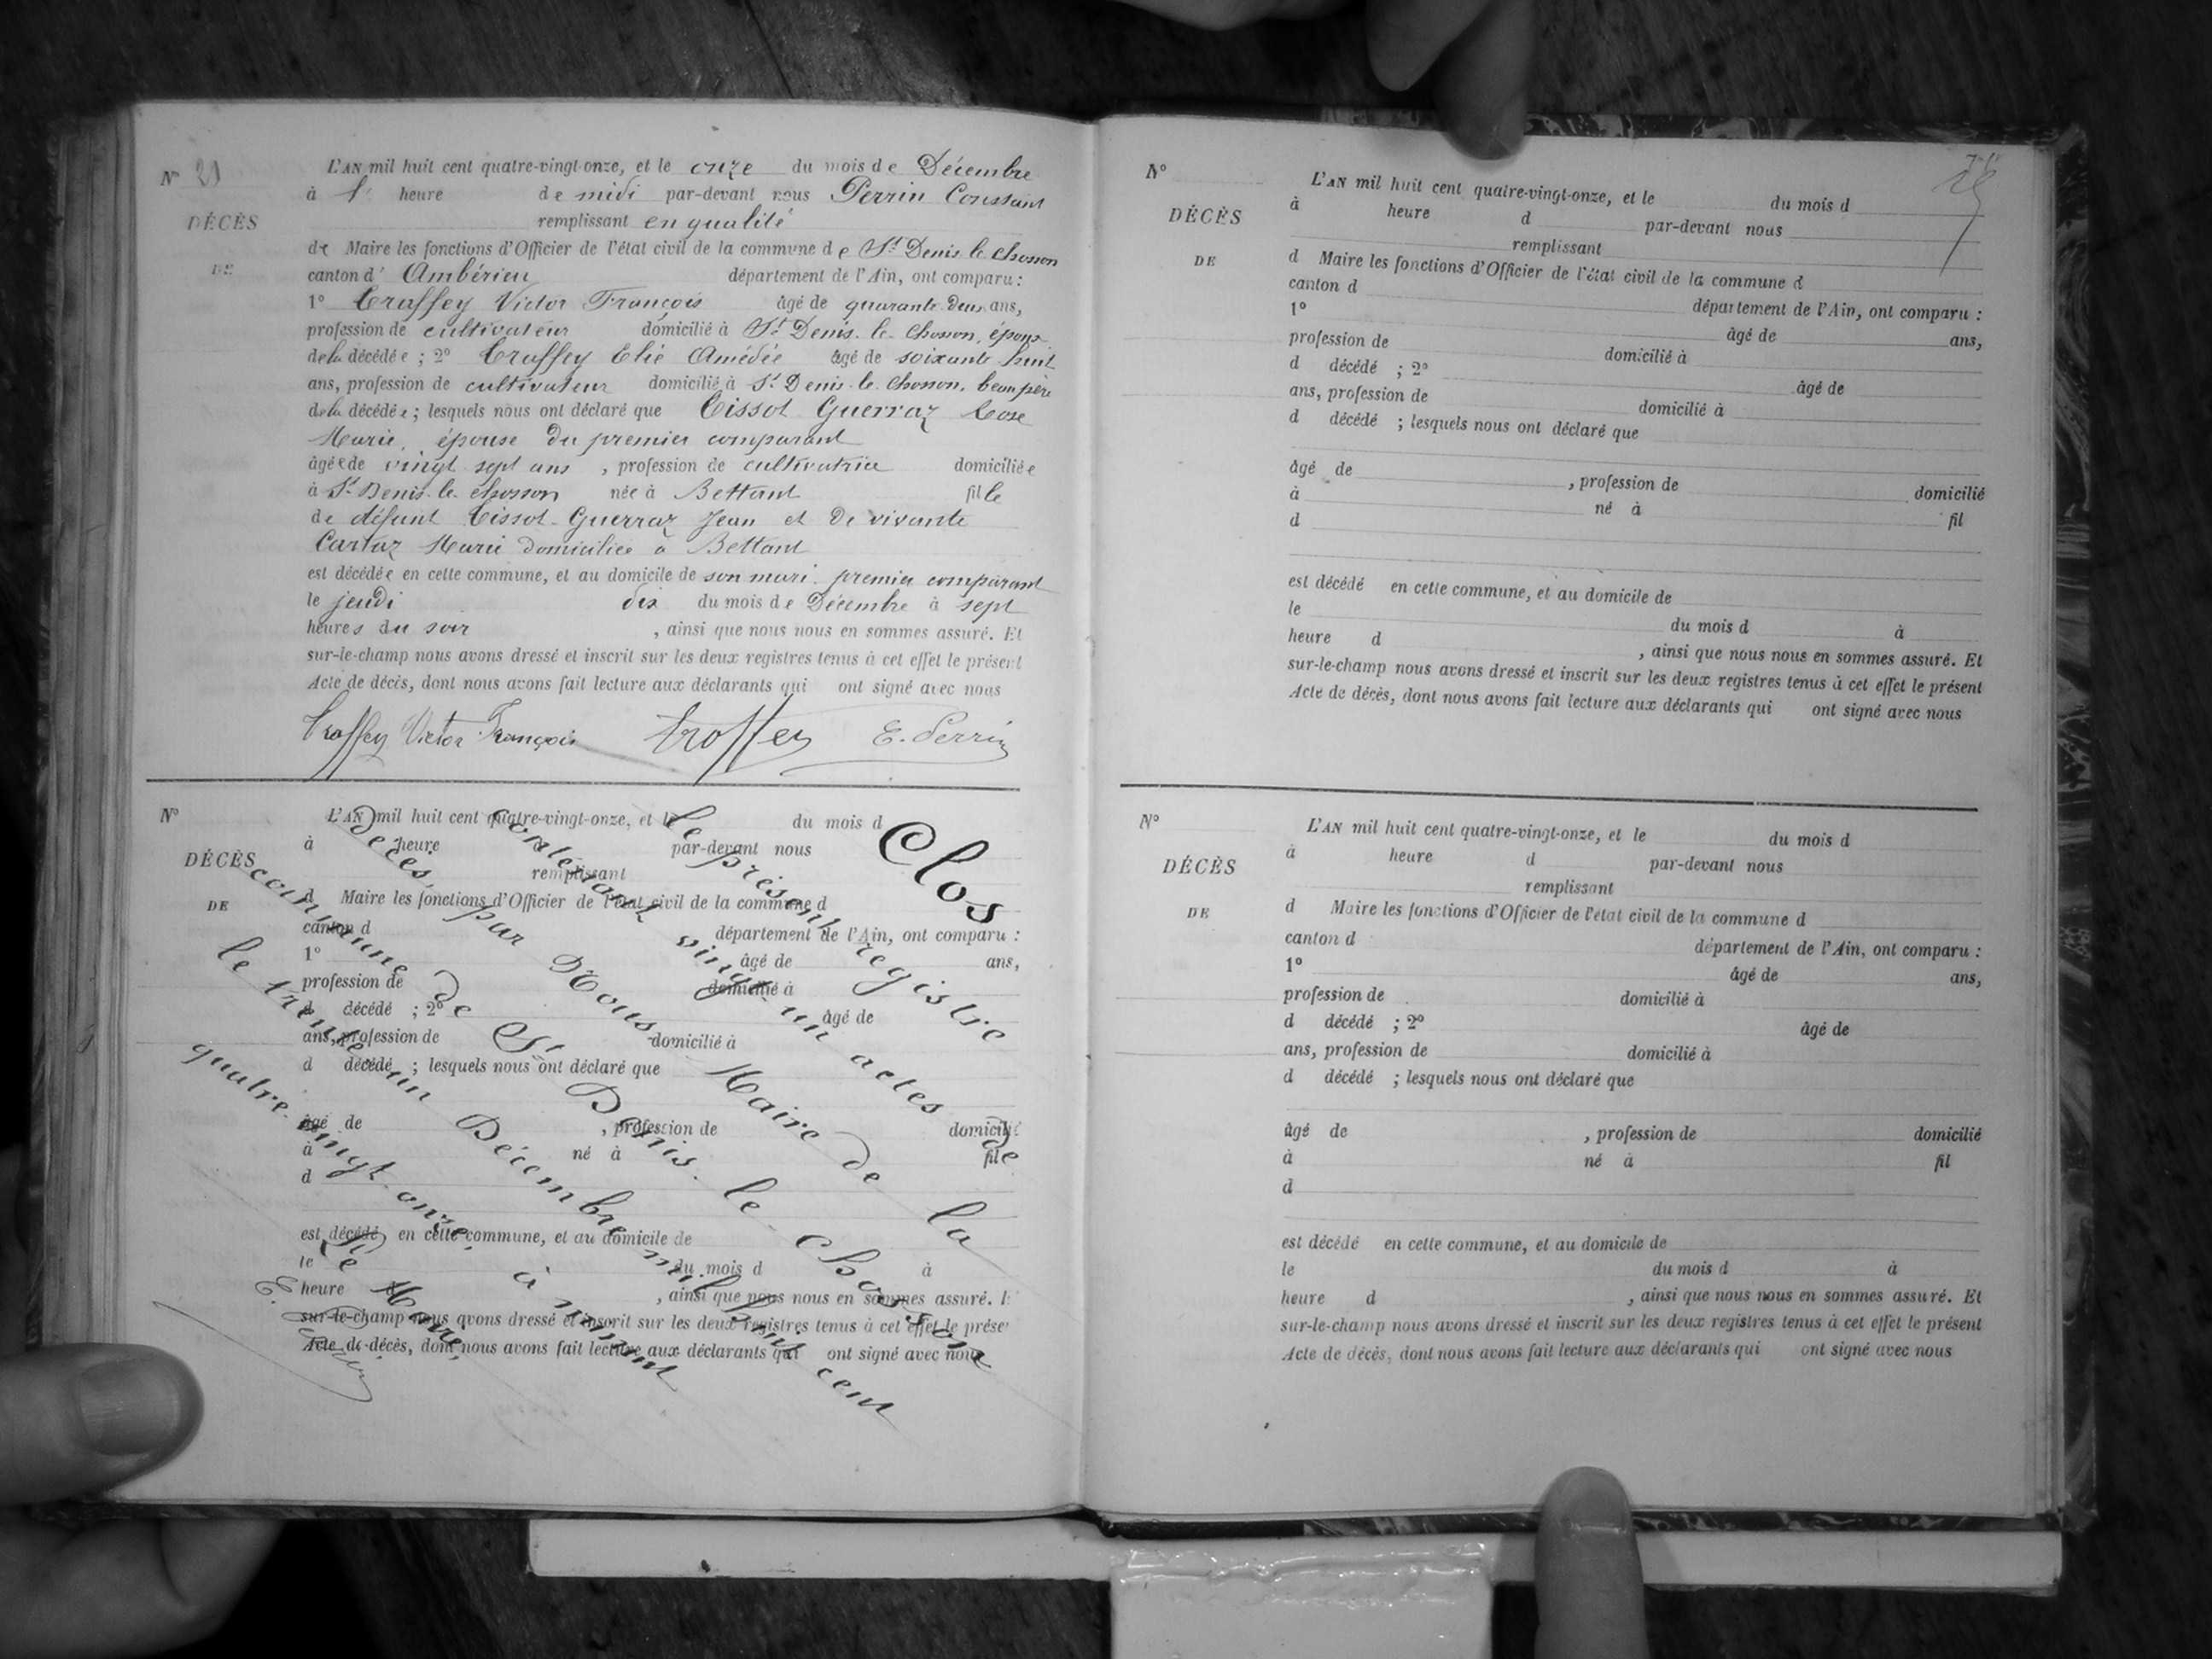 N° 21
DÉCÈS
DE
L'AN mil huit cent quatre-vingt-onze, et le onze du mois de Décembre
à 1 heure de midi par-devant nous Perrin Coussant
remplissant en qualité
de Maire les fonctions d'Officier de l'état civil de la commune de St Denis le chosson
canton d' Ambérieu département de l'Ain, ont comparu :
1° Troffey Victor François âgé de quarante deux ans,
profession de cultivateur domicilié à St Denis-le-Chosson, époux
de la décédée ; 2° Troffey Elie Amédée âgé de soixante huit
ans, profession de cultivateur domicilié à St Denis-le-Chosson, beau père
de la décédée ; lesquels nous ont déclaré que Tissot Guerraz
Marie, épouse du premier comparant
âgée de vingt sept ans , profession de cultivatrice domiciliée
à St Denis-le-chosson née à Bettant fille
de défunt Tissot-Guerraz Jean et de vivante
Cartaz Marie domiciliée à Bettant
est décédée en cette commune, et au domicile de son mari premier comparant
le jeudi dix du mois de Décembre à sept
heures du soir , ainsi que nous nous en sommes assuré. Et
sur-le-champ nous avons dressé et inscrit sur les deux registres tenus à cet effet le présent
Acte de décès, dont nous avons fait lecture aux déclarants qui ont signé avec nous
Troffey Victor François Troffey E. Perrin
N°
DÉCÈS
DE
L'AN mil huit cent quatre-vingt-onze, et le du mois d
à heure par-devant nous
remplissant
d Maire les fonctions d'Officier de l'état civil de la commune d
canton d département de l'Ain, ont comparu :
1° âgé de ans,
profession de domicilié à
d décédé ; 2° âgé de
ans, profession de domicilié à
d décédé ; lesquels nous ont déclaré que
âgé de , profession de domicilié
à né à fil
d
est décédé en cette commune, et au domicile de
le du mois d à
heure , ainsi que nous nous en sommes assuré.
sur-le-champ nous avons dressé et inscrit sur les deux registres tenus à cet effet le prése
Acte de décès, dont nous avons fait lecture aux déclarants qui ont signé avec nous
Clos
le présent registre
contenant vingt-un actes de
Décès, par Nous Maire de la
commune de St Denis-le-Chosson
le trente-un Décembre mil huit cent
quatre-vingt-onze, à minuit
Le Maire,
E. Perrin
N°
DÉCÈS
DE
L'AN mil huit cent quatre-vingt-onze, et le du mois d
à heure d par-devant nous
remplissant
d Maire les fonctions d'Officier de l'état civil de la commune d
canton d département de l'Ain, ont comparu :
1° âgé de ans,
profession de domicilié à
d décédé ; 2° âgé de
ans, profession de domicilié à
d décédé ; lesquels nous ont déclaré que
âgé de , profession de domicilié
à né à fil
d
est décédé en cette commune, et au domicile de
le du mois d à
heure d , ainsi que nous nous en sommes assuré. Et
sur-le-champ nous avons dressé et inscrit sur les deux registres tenus à cet effet le présent
Acte de décès, dont nous avons fait lecture aux déclarants qui ont signé avec nous
N°
DÉCÈS
DE
L'AN mil huit cent quatre-vingt-onze, et le du mois d
à heure d par-devant nous
remplissant
d Maire les fonctions d'Officier de l'état civil de la commune d
canton d département de l'Ain, ont comparu :
1° âgé de ans,
profession de domicilié à
d décédé ; 2° âgé de
ans, profession de domicilié à
d décédé ; lesquels nous ont déclaré que
âgé de , profession de domicilié
à né à fil
d
est décédé en cette commune, et au domicile de
le du mois d à
heure d , ainsi que nous nous en sommes assuré. Et
sur-le-champ nous avons dressé et inscrit sur les deux registres tenus à cet effet le présent
Acte de décès, dont nous avons fait lecture aux déclarants qui ont signé avec nous